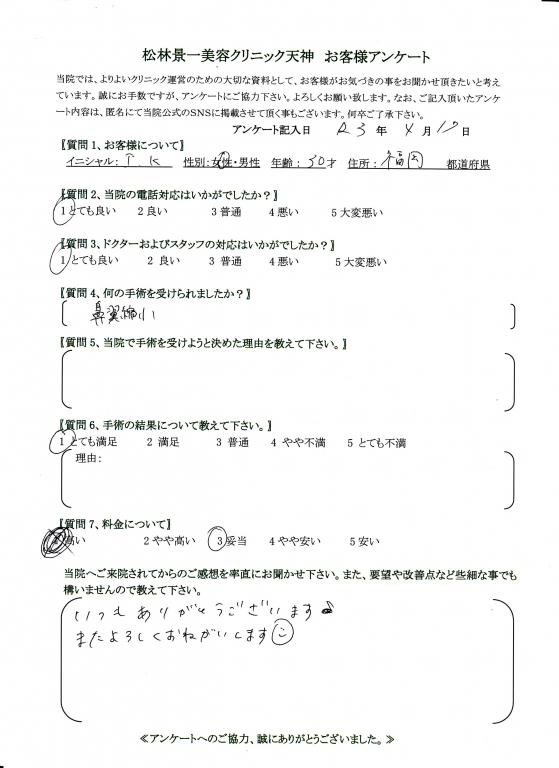 松林景一美容クリニック天神　お客様アンケート
当院では、よりよいクリニック運営のための大切な資料として、お客様がお気づきの事をお聞かせ頂きたいと考え
ています。誠にお手数ですが、アンケートにご協力下さい。よろしくお願い致します。なお、ご記入頂いたアンケ
ート内容は、匿名にて当院公式のSNSに掲載させて頂く事もございます。何卒ご了承下さい。
アンケート記入日　R3 年 4 月 10 日
〖質問1、お客様について〗
イニシャル: T.K　性別:女性・男性　年齢: 30才　住所: 福岡　都道府県
〖質問2、当院の電話対応はいかがでしたか？〗
1とても良い　2 良い　3 普通　4 悪い　5 大変悪い
〖質問3、ドクターおよびスタッフの対応はいかがでしたか？〗
1 とても良い　2 良い　3 普通　4 悪い　5 大変悪い
〖質問4、何の手術を受けられましたか？〗
鼻翼縮小
〖質問5、当院で手術を受けようと決めた理由を教えて下さい。〗
〖質問6、手術の結果について教えて下さい。〗
1 とても満足　2 満足　3 普通　4 やや不満　5 とても不満
理由:
〖質問7、料金について〗
高い　2 やや高い　3 妥当　4 やや安い　5 安い
当院へご来院されてからのご感想を率直にお聞かせ下さい。また、要望や改善点など些細な事でも
構いませんので教えて下さい。
いつもありがとうございます♪
またよろしくおねがいします☺
≪アンケートへのご協力、誠にありがとうございました。≫